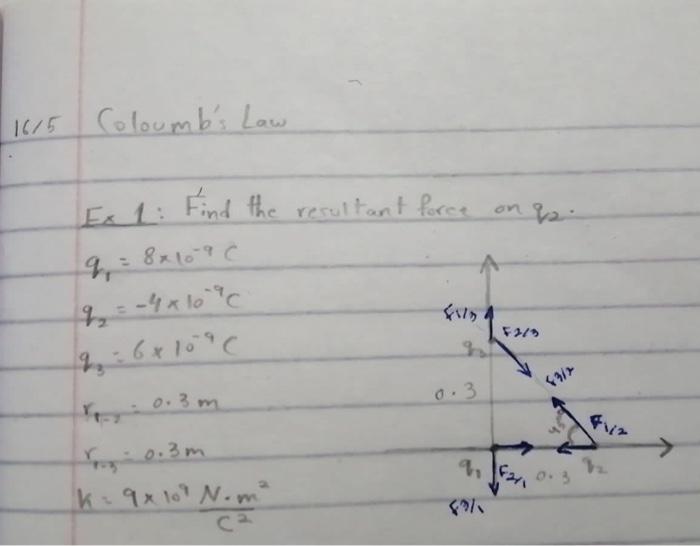 16/5 Coloumb's Law
Ex 1: Find the resultant force on q₂.
q₁ = 8×10⁻⁹ C
q₂ = -4×10⁻⁹C
q₃ = 6×10⁻⁹ C
r₁₋₂ = 0.3 m
r₁₋₃ = 0.3m
k = 9×10⁹ N·m²/C²
F1/3
F2/3
q₃
F3/2
0.3
F1/2
q₁
F2/1
0.3
q₂
F3/1